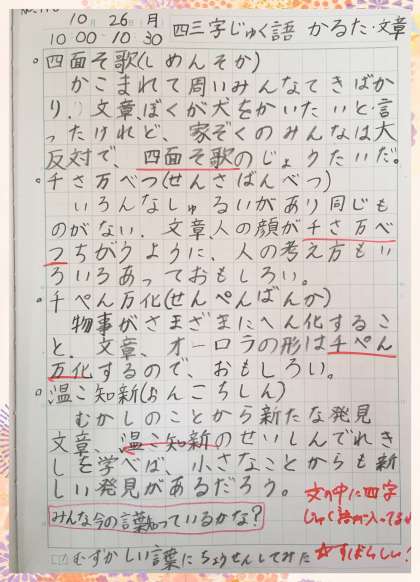 10月 26日 月
10 00 - 10 30 四三字じゅく語 かるた・文章
四面そ歌(しめんそか)
かこまれて周いみんなてきばか
り。文章、ぼくが犬をかいたいと言
ったけれど、家ぞくのみんなは大
反対で、四面そ歌のじょうたいだ。
千さ万べつ(せんさばんべつ)
いろんなしゅるいがあり同じも
のがない。文章、人の顔が千さ万べ
つちがうように、人の考え方もい
ろいろあっておもしろい。
千ぺん万化(せんぺんばんか)
物事がさまざまにへん化するこ
と。文章、オーロラの形は千ぺん
万化するので、おもしろい。
温こ知新(おんこちしん)
むかしのことから新たな発見
文章、温こ知新のせいしんでれき
しを学べば、小さなことからも新
しい発見があるだろう。
文の中に四字
じゅく語が入ってるね
みんな今の言葉知っているかな?
むずかしい言葉にちょうせんしてみた
すばらしい!